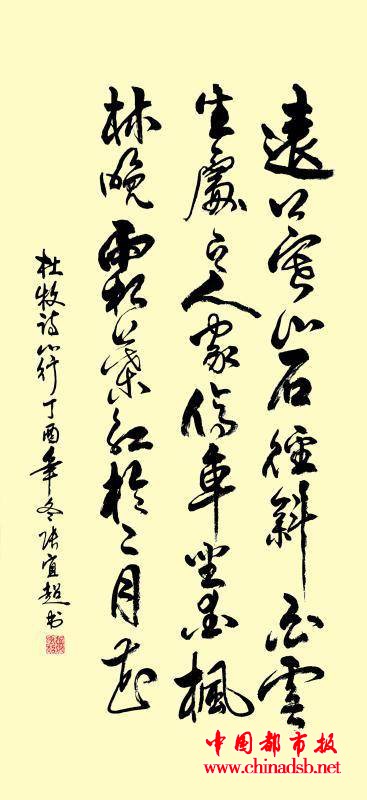 遠上寒山石徑斜白雲
生處有人家停車坐愛楓
林晚霜葉紅於二月花
杜牧诗山行丁酉年冬张宜超书
中国都市报
www.chinadsb.net